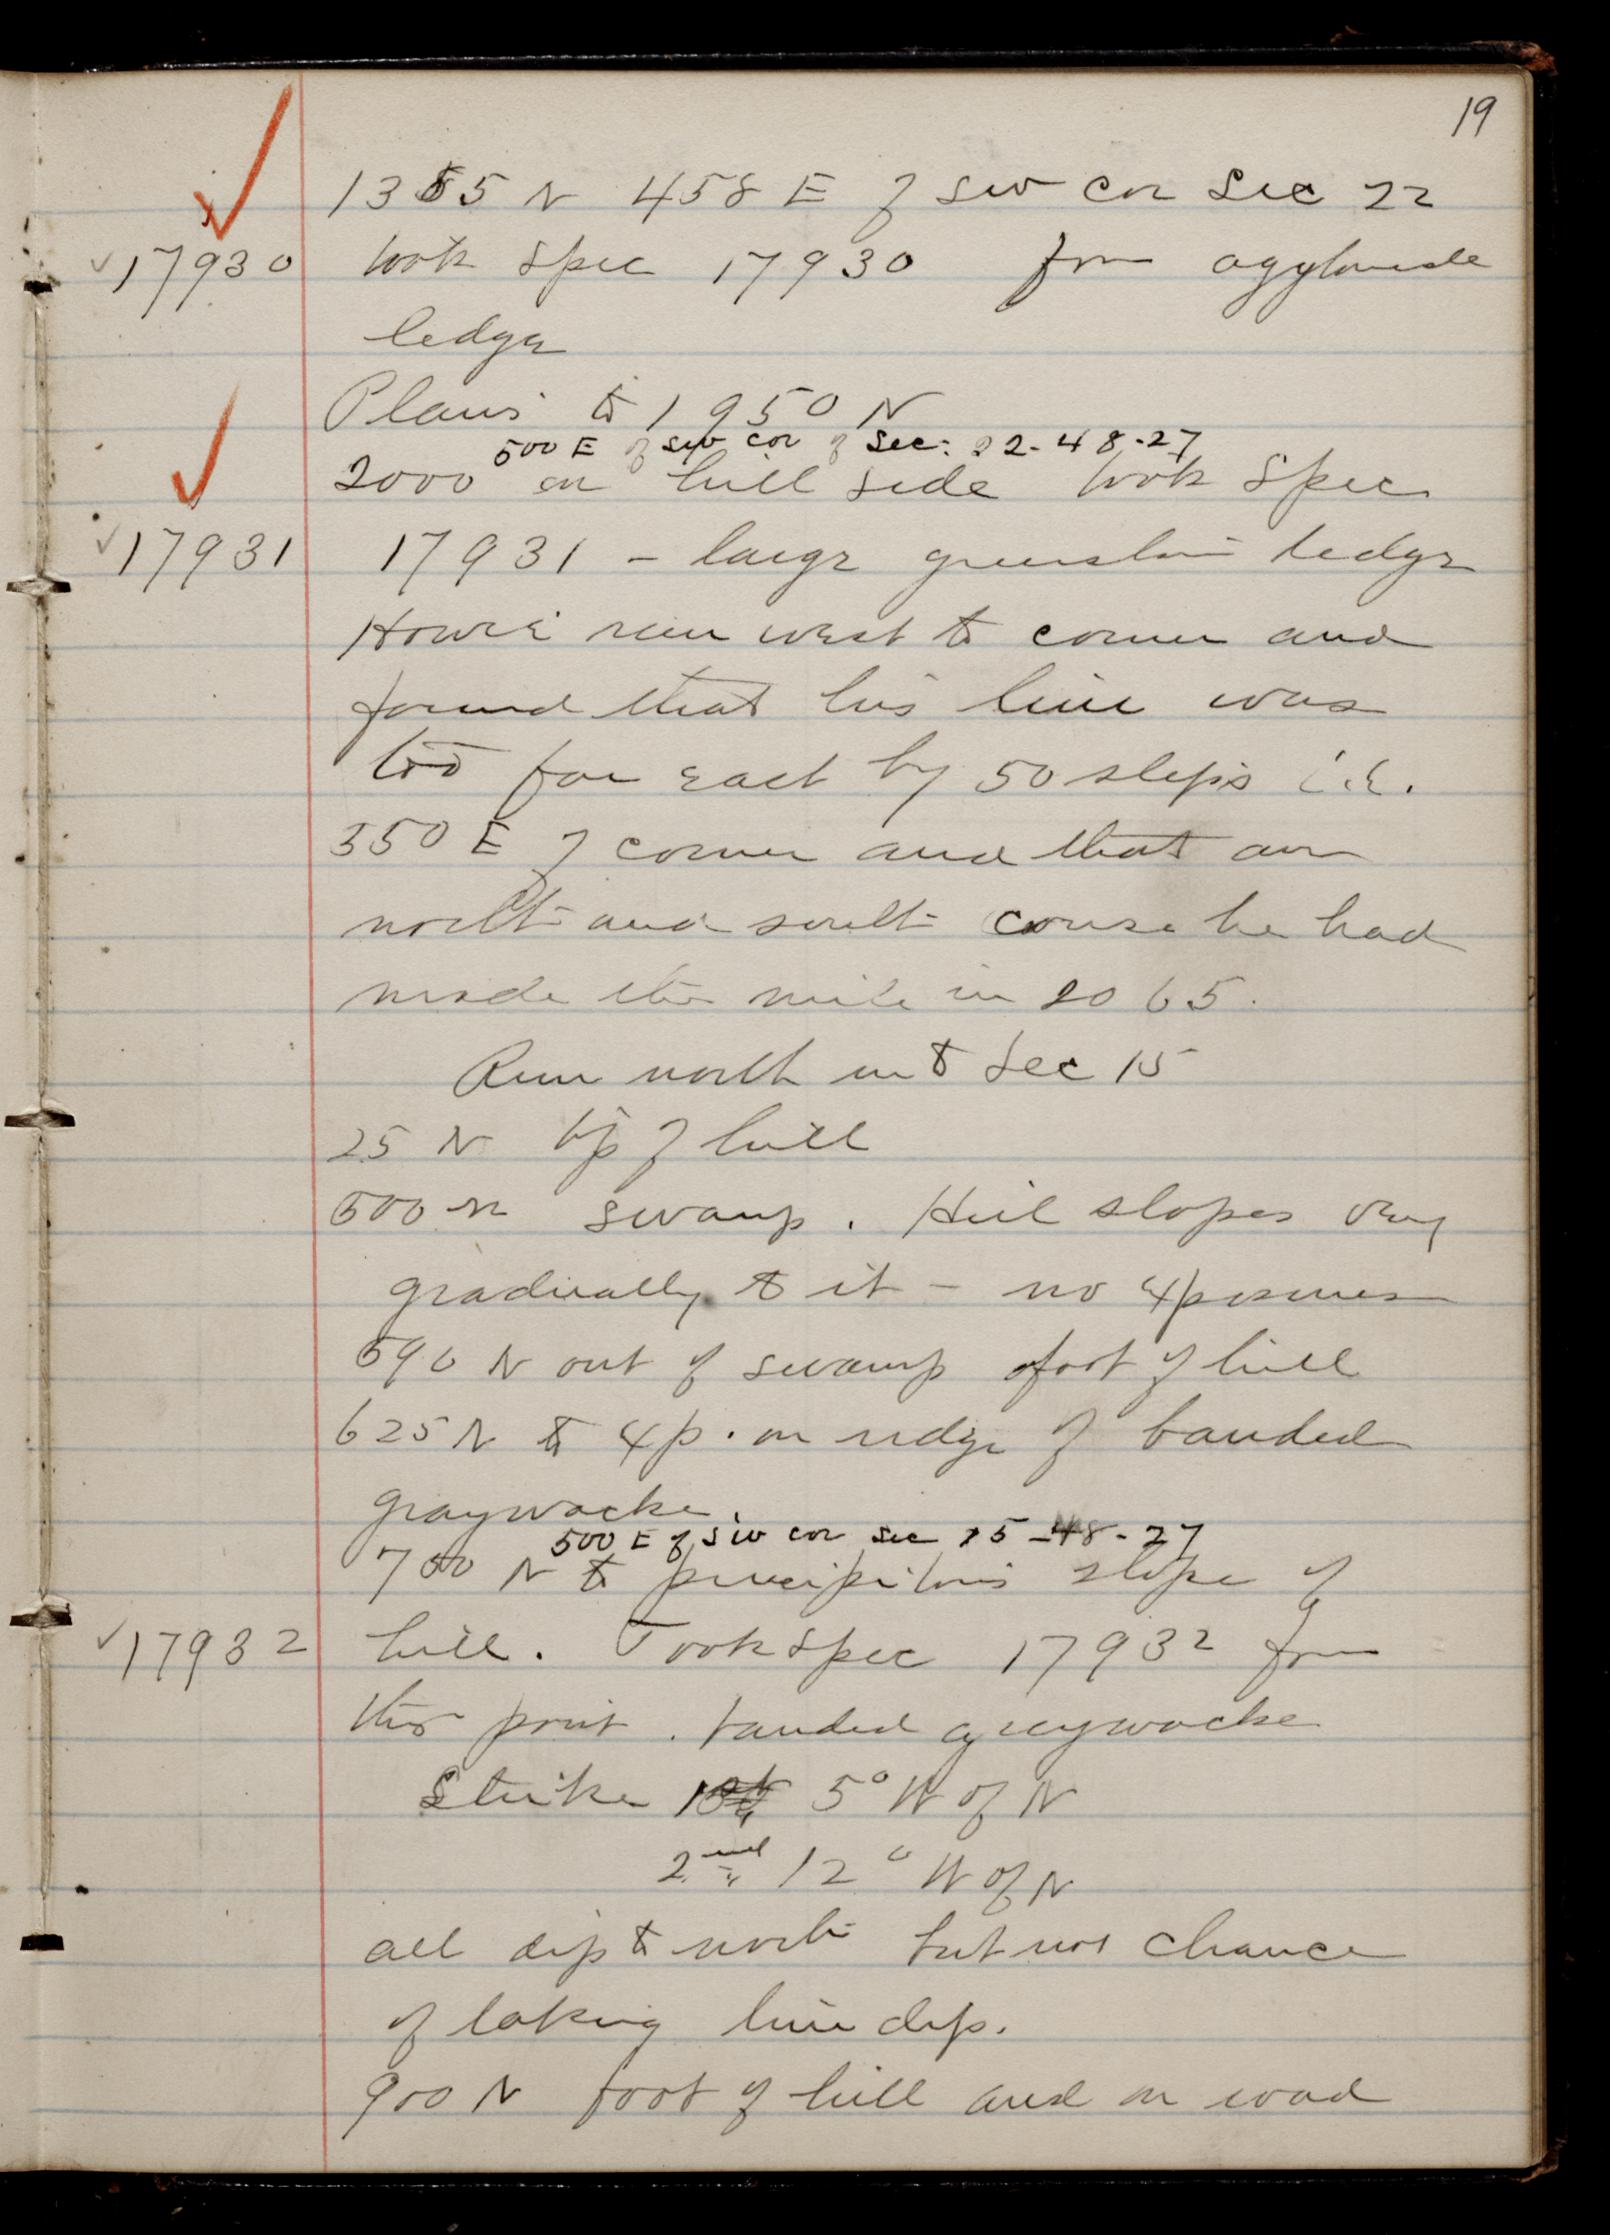 19
1355 N 458 E of SW cor Sec 22
✓17930 took spec 17930 from agglomerate
ledge
Plains to 1950 N
500 E of SW cor of Sec. 22-48-27
2000 on hill side took spec
✓17931 17931 – large greenstone ledge
Howe run west to corner and
found that his line was
too far east by 50 steps i.e.
350 E of corner and that on
north and south course he had
made the mile in 2065.
Run north into Sec 15
25 N top of hill
500 N swamp. Hill slopes very
gradually to it – no exposures
590 N out of swamp foot of hill
625 N to exp. on ridge of banded
graywacke.
500 E of SW cor sec 15-48-27
700 N to precipitous slope of
✓17932 hill. Took spec 17932 from
this point. banded graywacke
Strike 1st 5° W of N
2nd 12° W of N
all dip to north but no chance
of taking line dip.
900 N foot of hill and on road